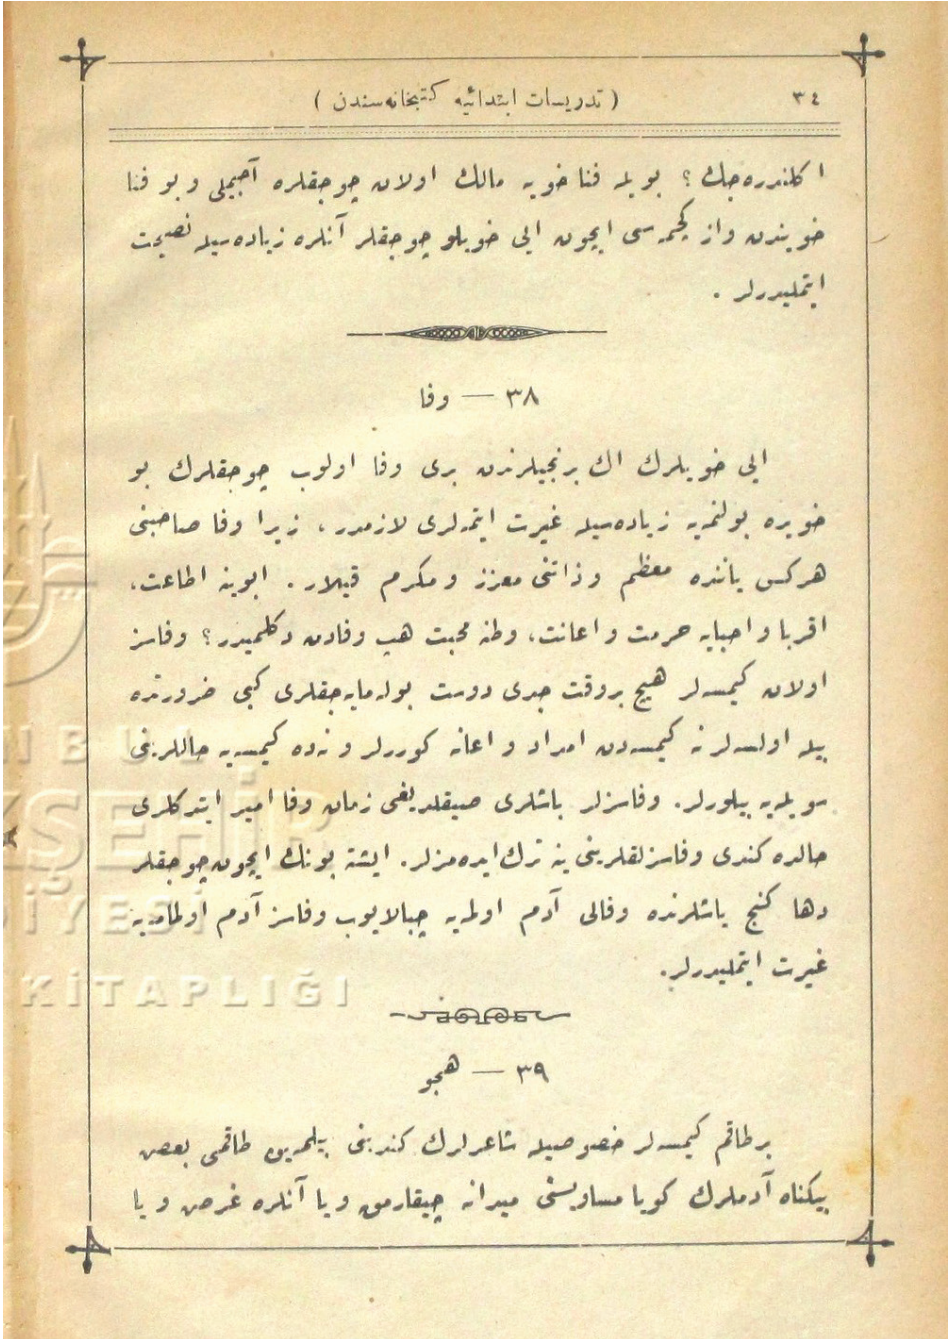 ٣٤ ( تدريسات ابتدائيه كتبخانه‌سندن )
اكلندره‌جك ؟ بويله فنا خويه مالك اولان چوجقلره آجيملی و بو فنا
خويندن واز كچمه‌سی ايچون ايی خويلو چوجقلر آنلره زياده‌سيله نصيحت
ايتمليدرلر .
٣٨ — وفا
ايی خويلرك اك برنجيلرندن بری وفا اولوب چوجقلرك بو
خويده بولنمه‌يه زياده‌سيله غيرت ايتمه‌لری لازمدر ، زيرا وفا صاحبنی
هركس ياننده معظم و ذاتنی معزز و مكرم قيلار . ابوينه اطاعت ،
اقربا و احبايه حرمت و اعانت ، وطنه محبت هپ وفادن دكلميدر ؟ وفاسز
اولان كيمسه‌لر هيچ بر وقت جدی دوست بوله‌مايه‌جقلری كبی ضرورتده
بيله اولسه‌لر نه كيمسه‌دن امداد و اعانه كوررلر و نه‌ده كيمسه‌يه حاللرينی
سويله‌يه بيلورلر . وفاسزلر باشلری صيقلديغی زمان وفا اميد ايتدكلری
حالده كندی وفاسزلقلرينی ينه ترك ايده‌مزلر . ايشته بونك ايچون چوجقلر
دها كنج ياشلرنده وفالی آدم اولمه‌يه چبالايوب وفاسز آدم اولمامه‌يه
غيرت ايتمليدرلر .
٣٩ — هجو
بر طاقم كيمسه‌لر خصوصيله شاعرلرك كندينی بيلمه‌ين طاقمی بعض
بيكناه آدملرك كويا مساويسنی ميدانه چيقارمق و يا آنلره غرض و يا
ISTANBUL
KİTAPLIĞI